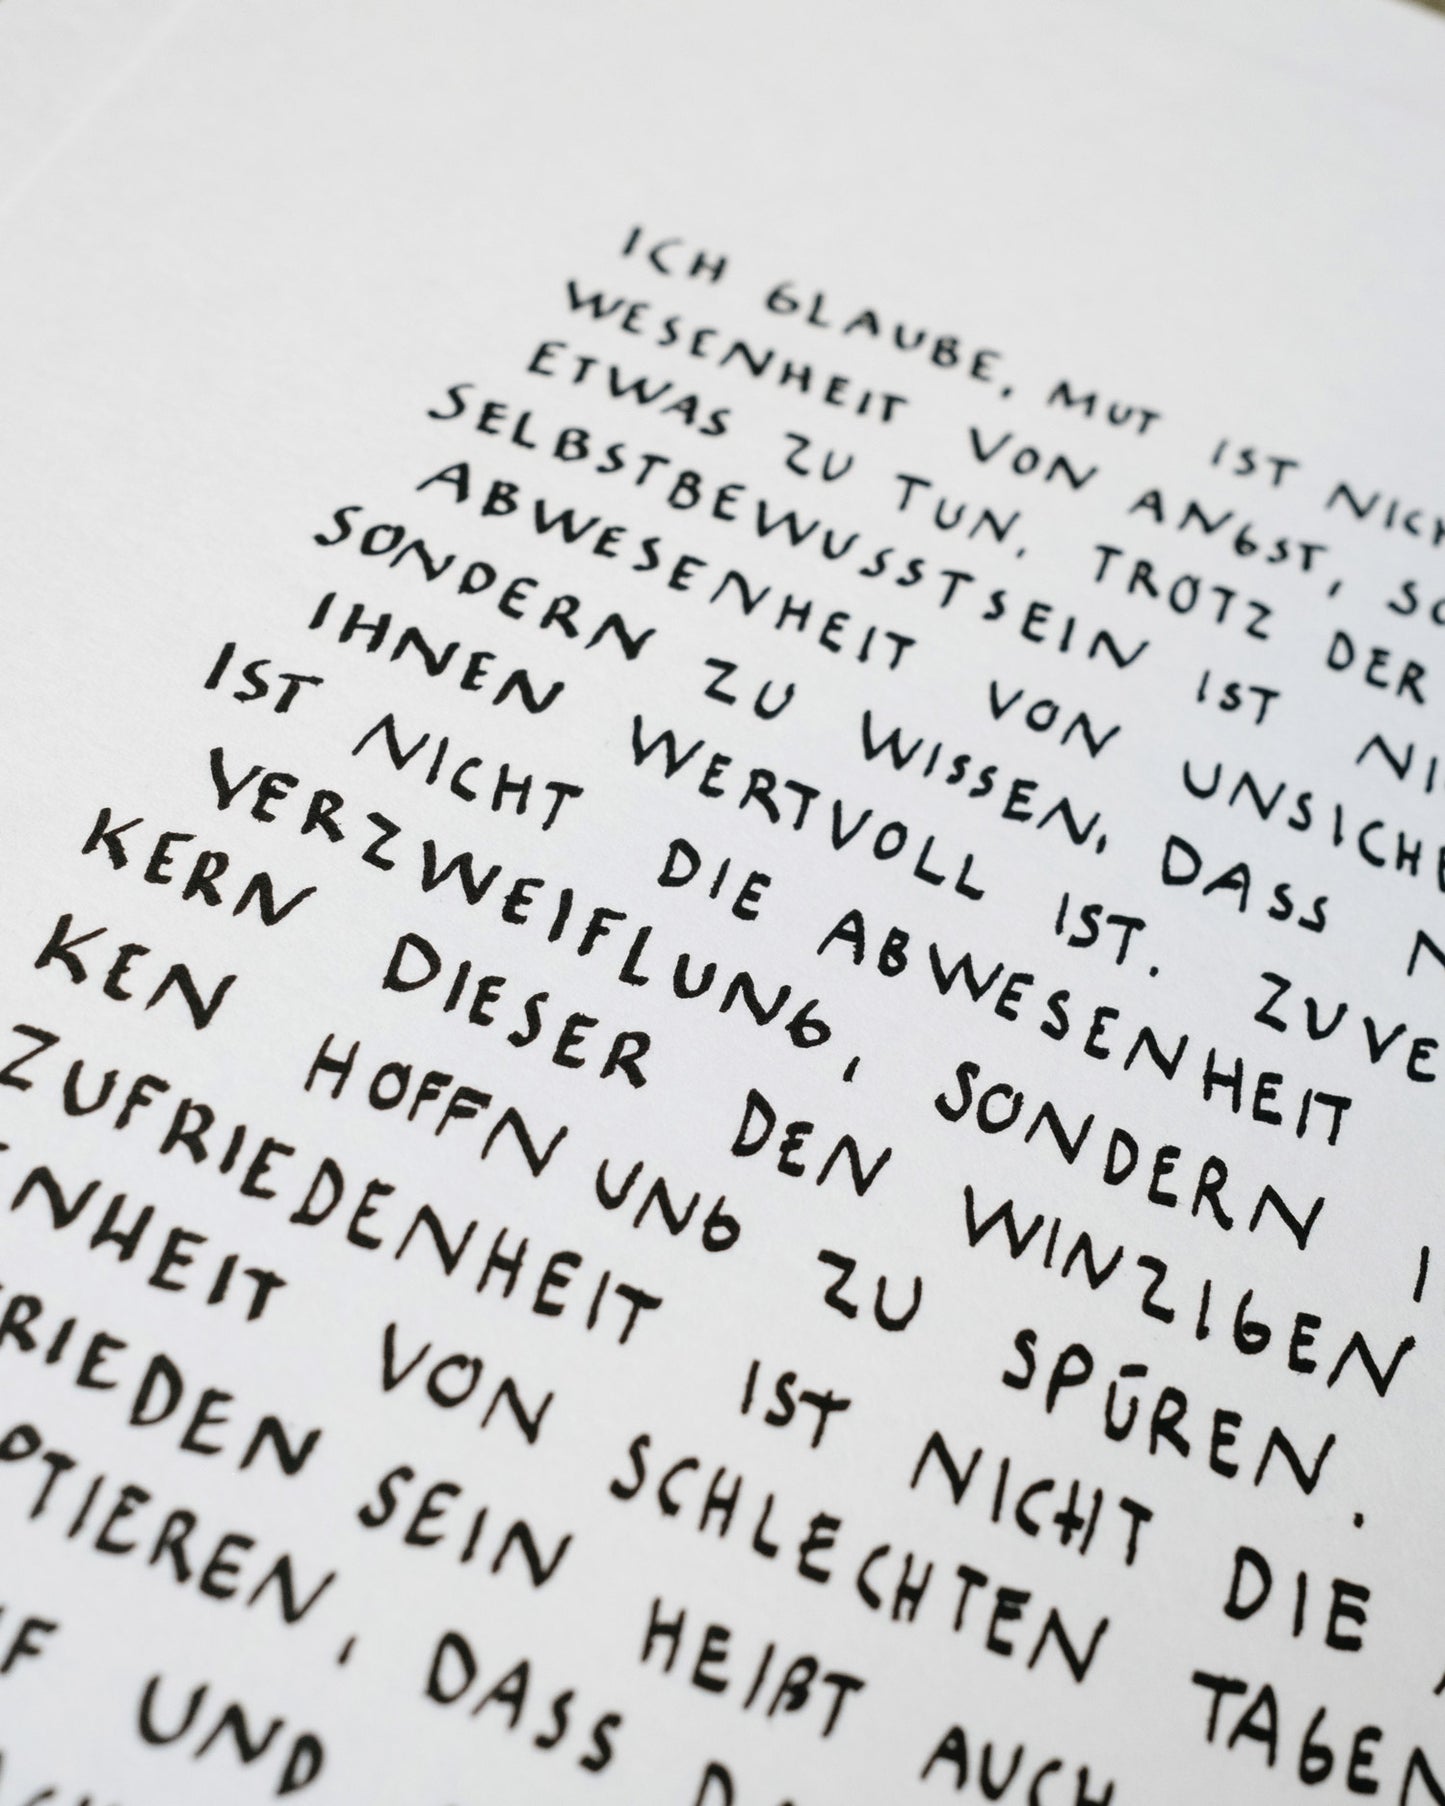 ICH GLAUBE, MUT IST
WESENHEIT VON ANGST,
ETWAS ZU TUN, TROTZ DER
SELBSTBEWUSSTSEIN IST
ABWESENHEIT VON
SONDERN ZU WISSEN, DASS
IHNEN WERTVOLL IST.
IST NICHT DIE ABWESENHEIT
VERZWEIFLUNG, SONDERN
KERN DIESER DEN WINZIGEN
KEN HOFFNUNG ZU SPÜREN.
ZUFRIEDENHEIT IST NICHT DIE
ENHEIT VON SCHLECHTEN TAGEN
RIEDEN SEIN HEIßT AUCH
PTIEREN, DASS
UND